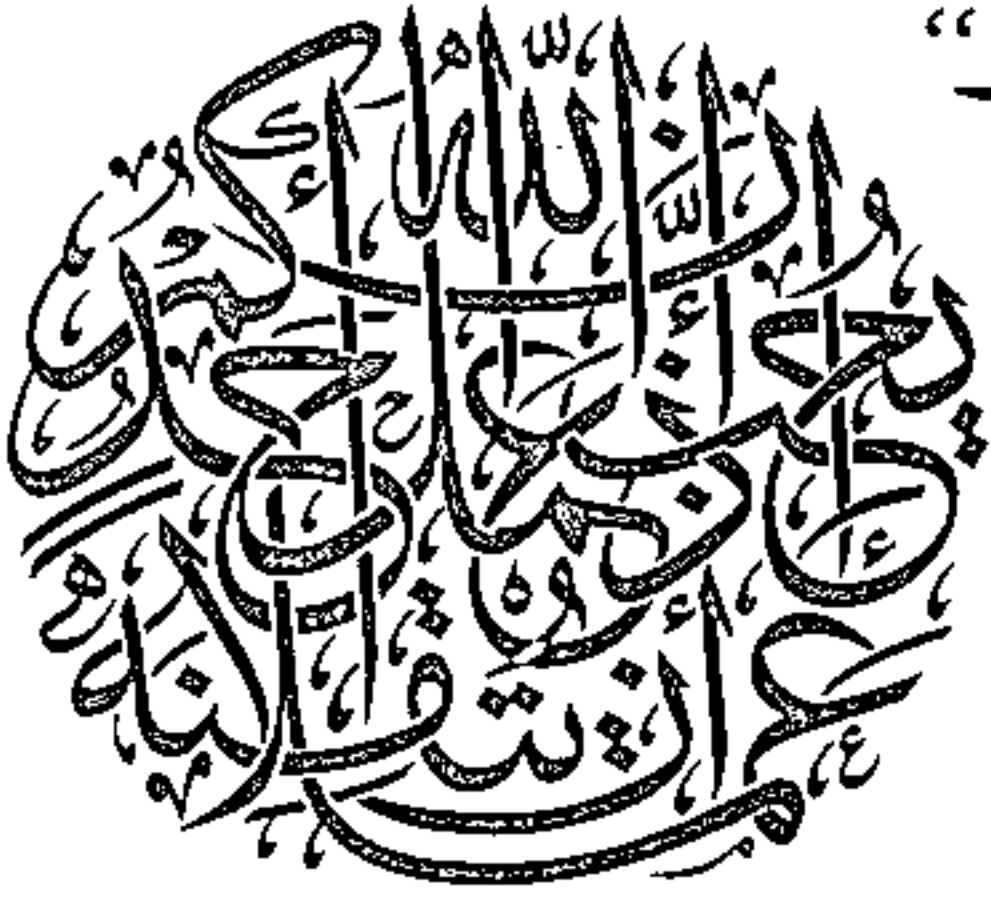 إن الله يحب إذا عمل أحدكم عملا أن يتقنه